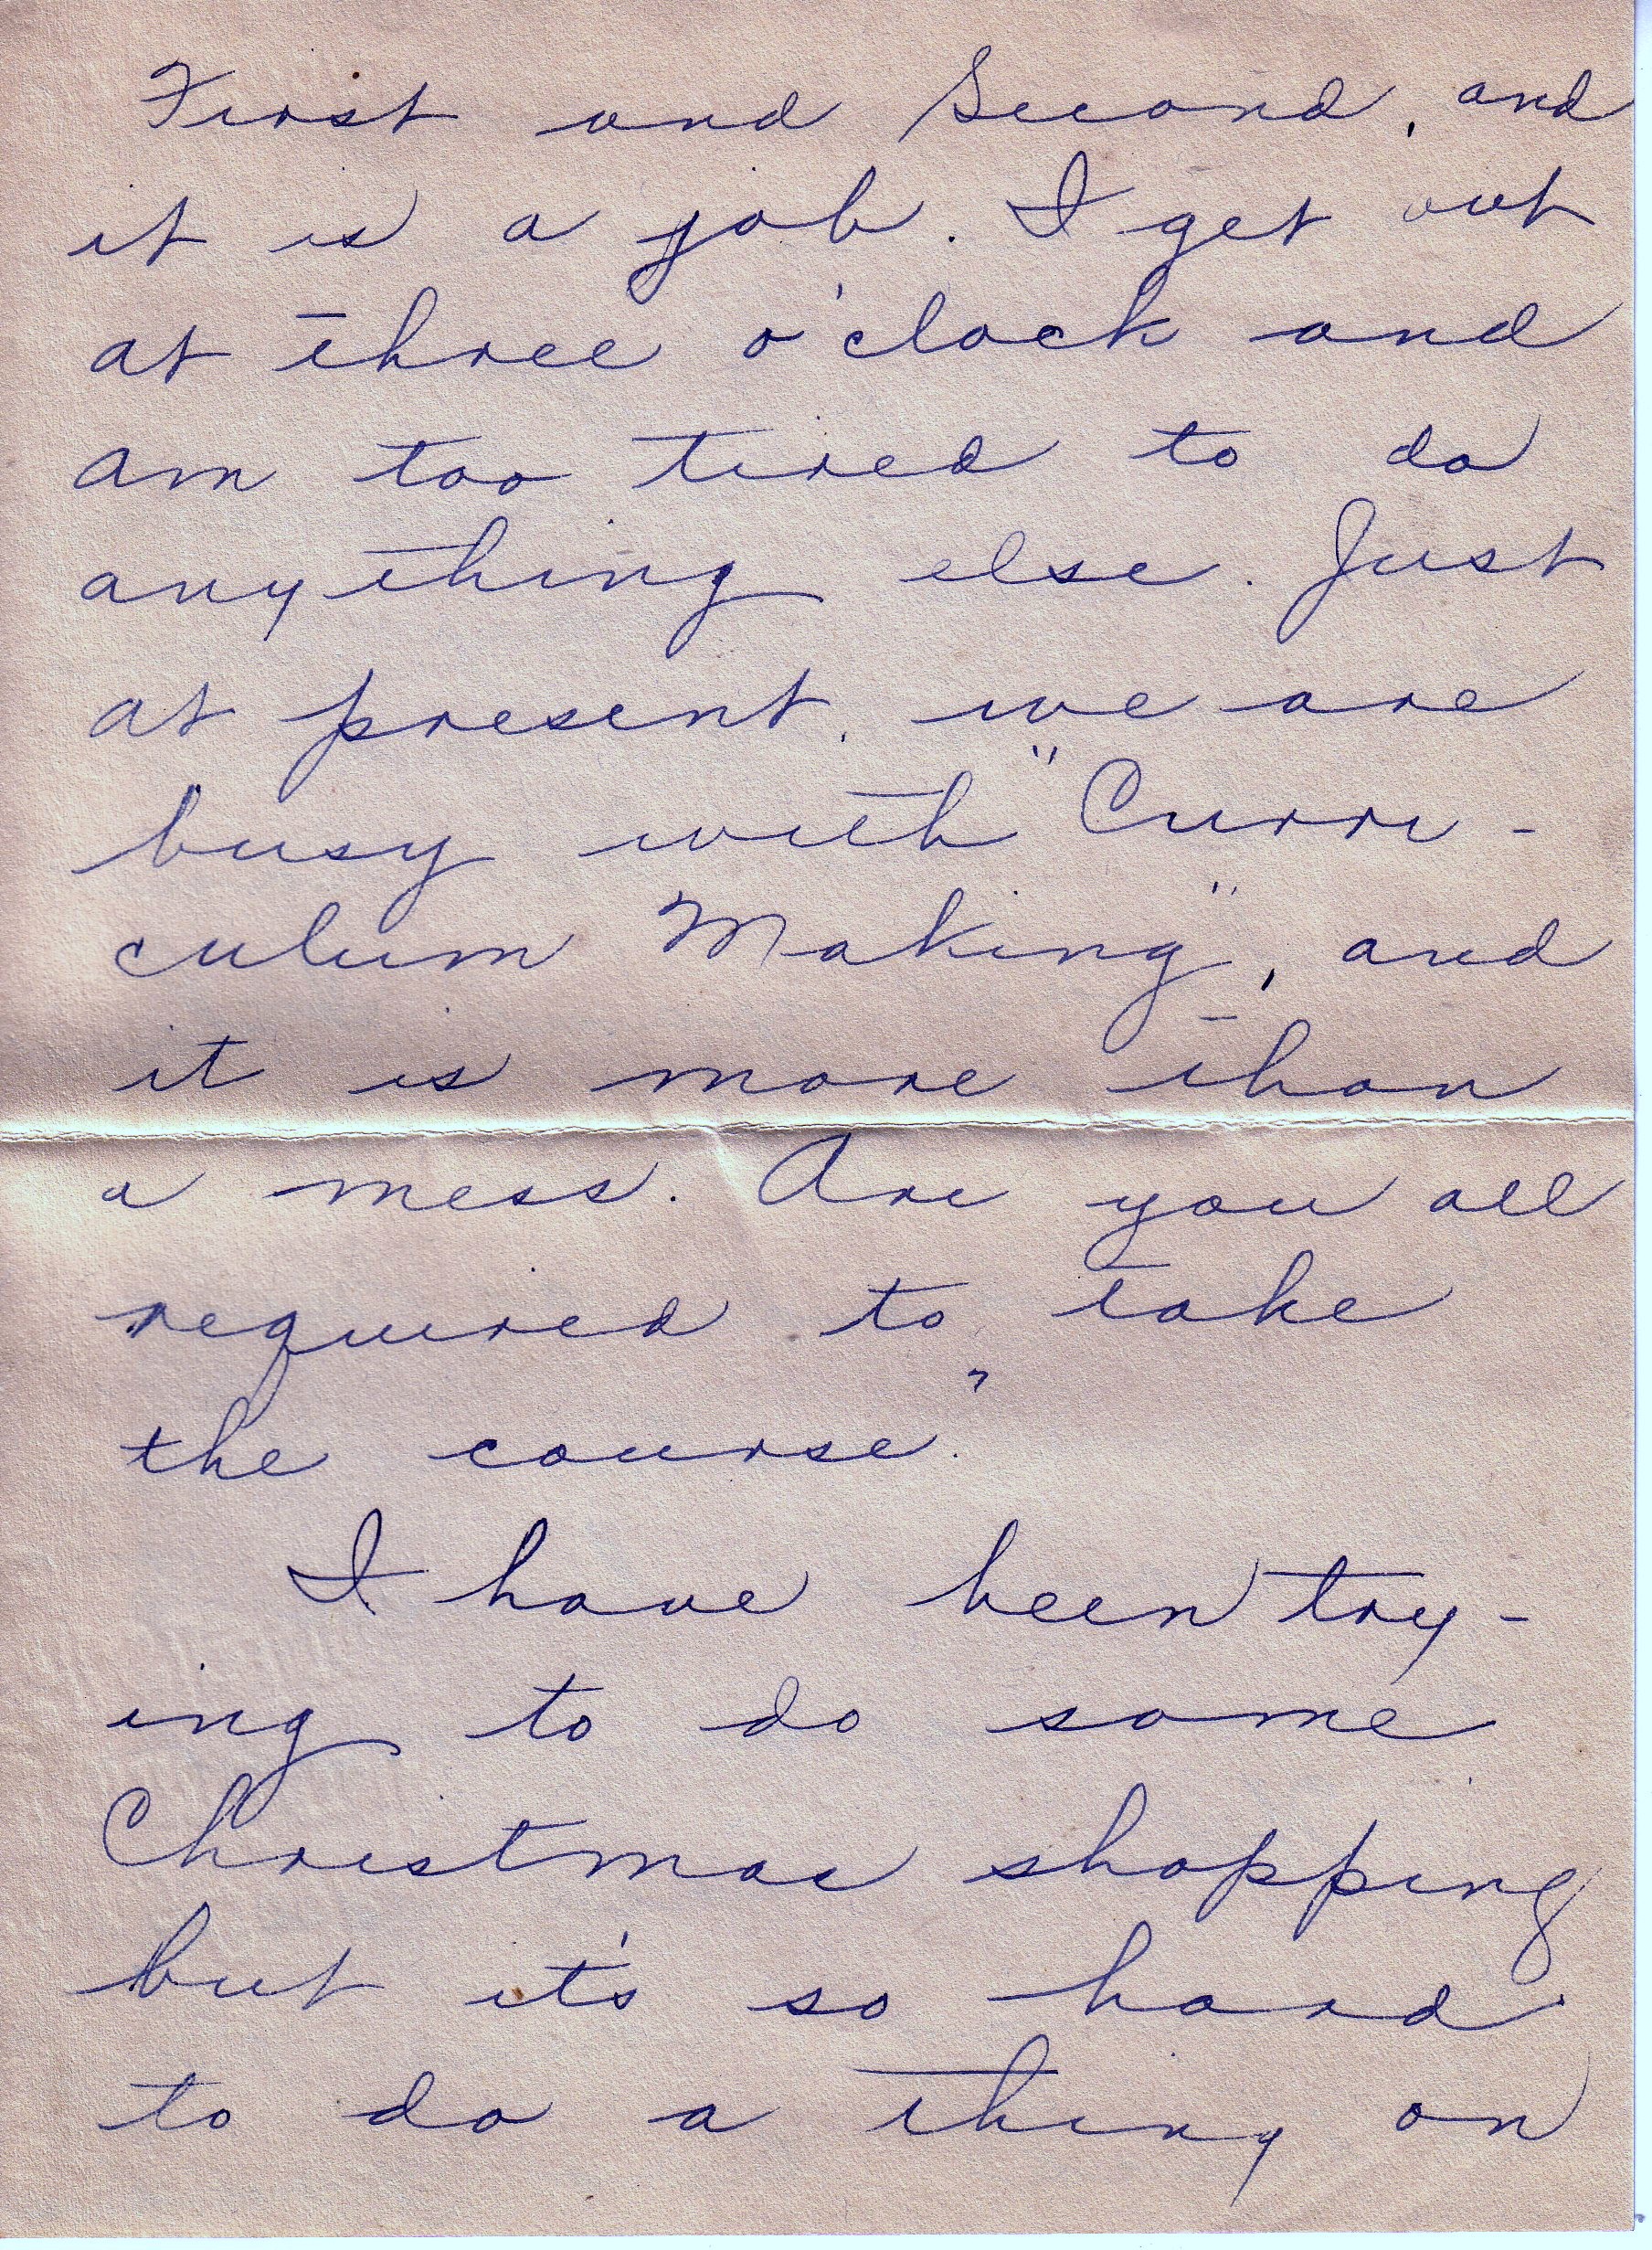 First and Second, and
it is a job. I get out
at three o'clock and
am too tired to do
anything else. Just
at present, we are
busy with "Curri-
culum Making", and
it is more than
a mess. Are you all
required to take
the course?
I have been try-
ing to do some
Christmas shopping
but it's so hard
to do a thing on